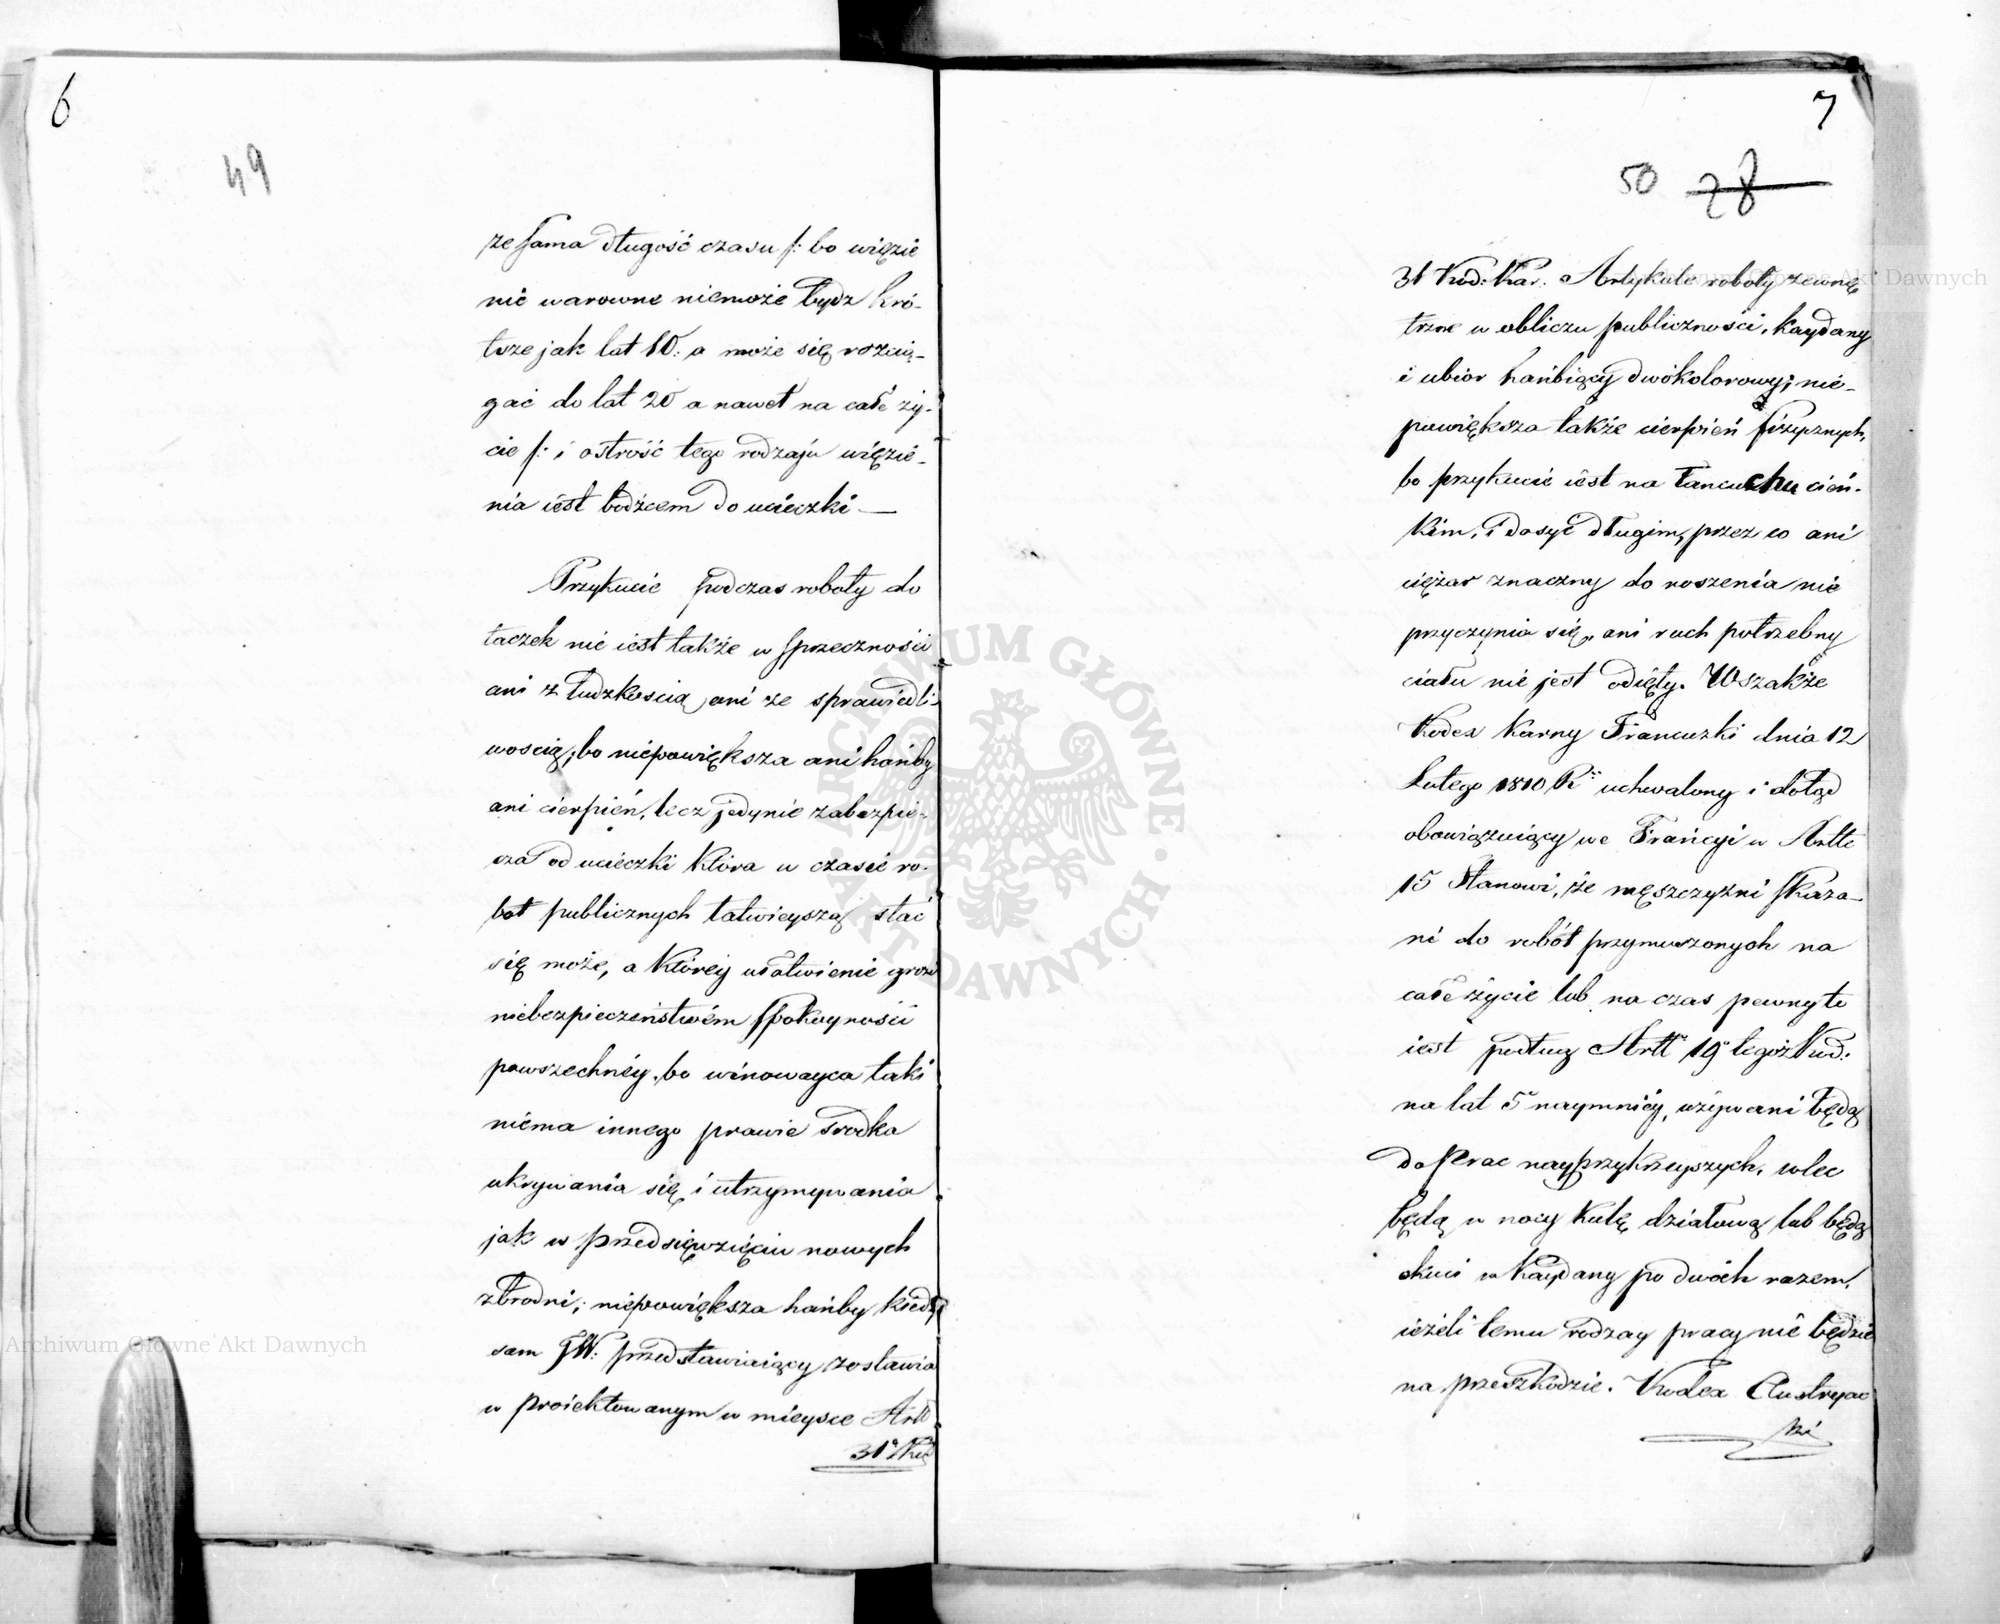 6
49
ze sama długość czasu /: bo więzie
nie warowne niemoże bydz kró-
tsze jak lat 10: a może się rozcią-
gać do lat 20 a nawet na całe ży-
cie /: i ostrość tego rodzaju więzie-
nia iest bodźcem do ucieczki —
Przykucie podczas roboty do
taczek nie iest także w sprzeczności
ani z ludzkoscią, ani ze sprawiedli-
woscią, bo niepowiększa ani hańby
ani cierpień, lecz jedynie zabezpie-
cza od ucieczki która w czasie ro-
bot publicznych łatwieyszą stać
się może, a któréy ułatwienie grozi
niebezpieczeństwém spokoyności
powszechnéy, bo winowayca taki
niéma innego prawie srodka
ukrywania się i utrzymywania
jak w przedsięwzięciu nowych
zbrodni; niepowiększa hańby kiedy
sam JW: przedstawiaiący zostawia
w proiektowanym w mieysce Artt
31º Kod
7
50 28
31 Kod: Kar: Artykule roboty zewnę
trzne w obliczu publiczności, kaydany
i ubior hańbiący dwókolorowy; nie-
powiększa także cierpień fizycznych,
bo przykucie iest na łancuchu cień-
kim, i dosyć długim, przez co ani
ciężar znaczny do noszenia nie
przyczynia się, ani ruch potrzebny
ciału nie jest odięty. Wszakże
Kodex Karny Francuzki dnia 12
Lutego 1810 R: uchwalony i dotąd
obowiązuiący we Francyi w Artle
15 stanowi, że męszczyzni skaza-
ni do robót przymuszonych na
całe życie lub na czas pewny to
iest podług Artt 19 tegoż Kod:
na lat 5 naymniéy, używani będą
do prac nayprzykrzeyszych, wlec
będą u nogy kulę działową lub będą
skuci w kaydany po dwóch razem,
ieżeli temu rodzay pracy nie będzie
na przeszkodzie. Kodex Austryac
ki
ARCHIWUM GŁÓWNE · AKT DAWNYCH ·
Archiwum Główne Akt Dawnych
Archiwum Główne Akt Dawnych